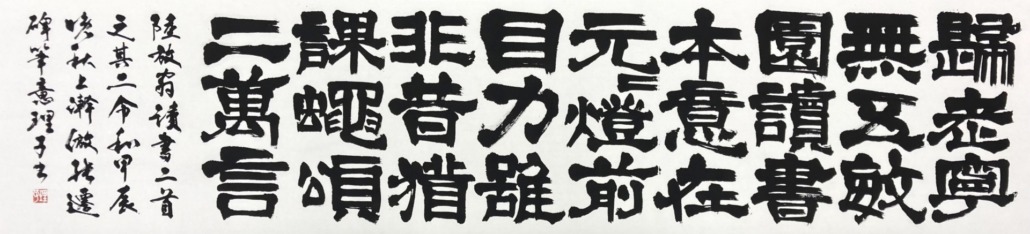 歸老寧
無五畝
園讀書
本意在
元〻燈前
目力雖
非昔猶
課蠅頭
二萬言
陸放翁讀書二首
之其二令和甲辰
晩秋上澣倣張遷
碑筆意理子書